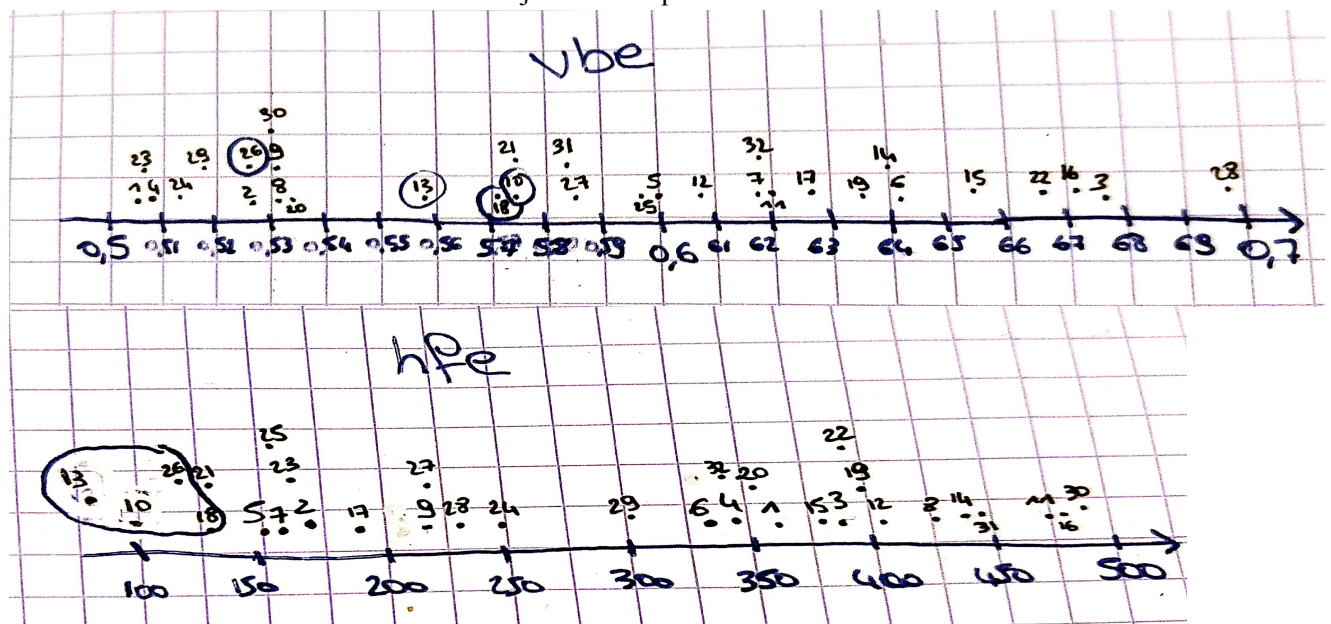 vbe
30
23 29 26 9 21 31 32 14
1 4 24 2 8 20 13 18 10 27 25 5 12 7 11 17 19 6 15 22 16 3 28
0,5 0,51 0,52 0,53 0,54 0,55 0,56 0,58 0,59 0,6 61 62 63 64 65 66 67 68 69 0,7
hfe
25 22
13 26 21 23 27 32 20 19
10 18 5 7 2 17 9 28 24 29 6 4 1 15 3 12 8 14 31 11 16 30
100 150 200 250 300 350 400 450 500